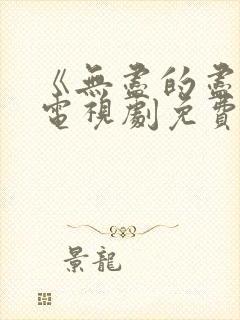 《無盡的盡
電視劇免費
景龍